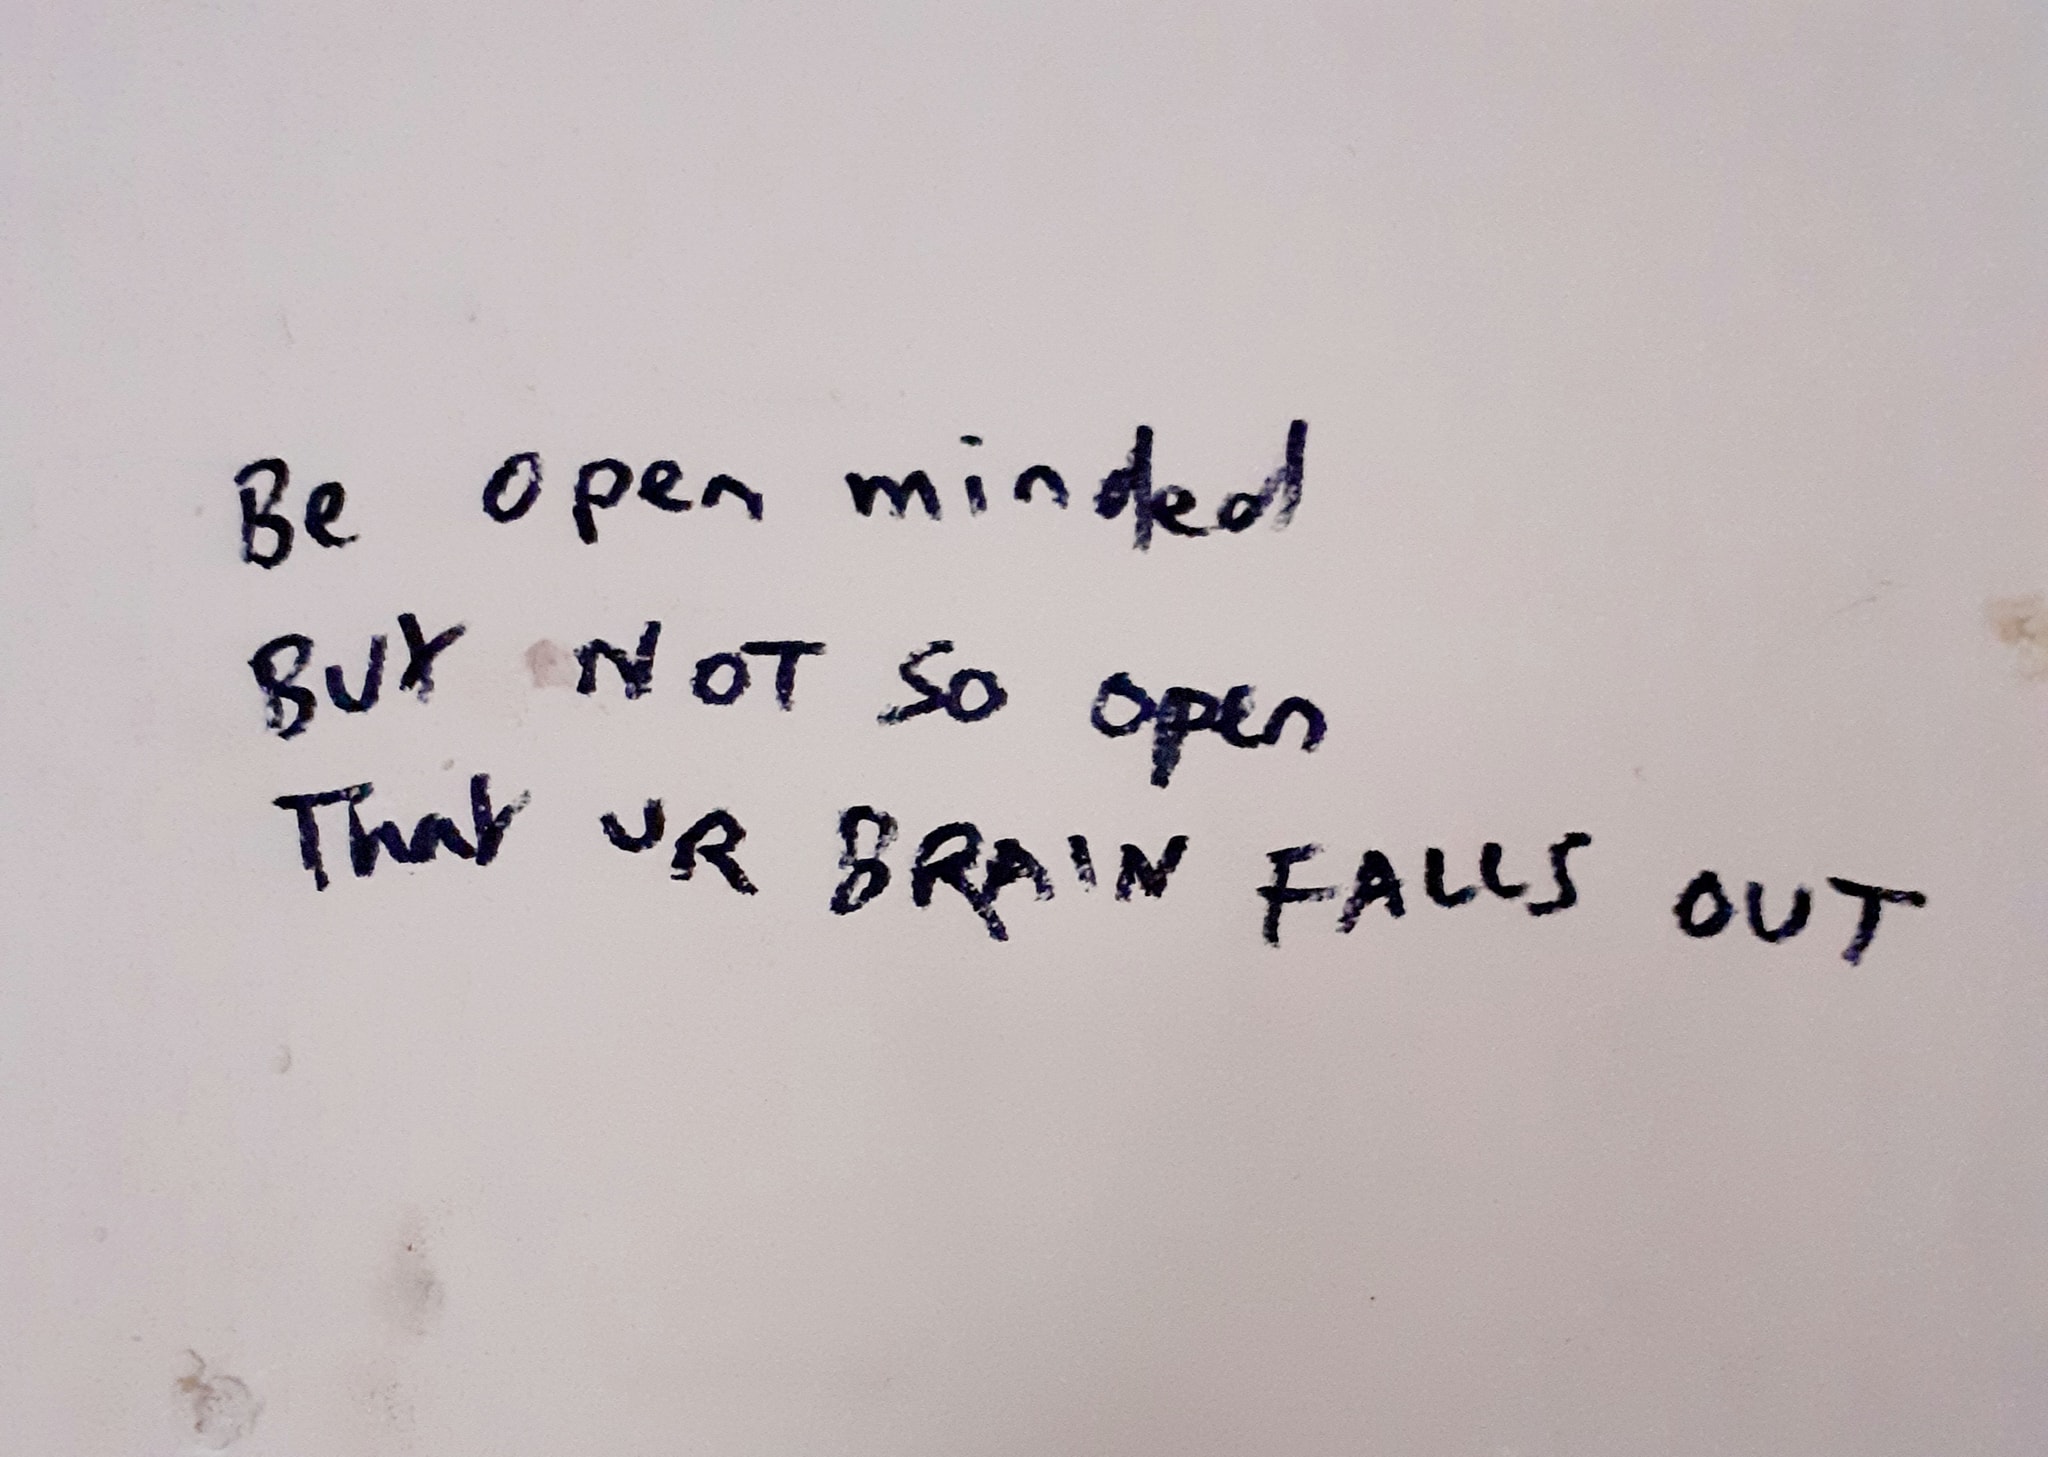 Be open minded
BUt NOT So open
That UR BRAIN FALLS OUT